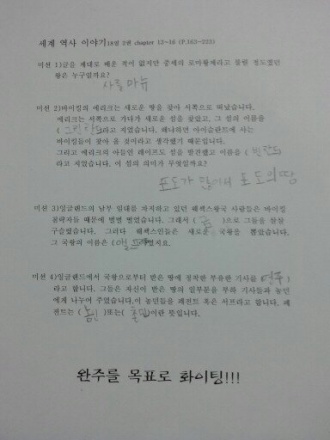 세계 역사 이야기(8일 2권 chapter 12-16 (P.162-222)
미션 1)글을 제대로 배운 적이 없지만 중세의 로마황제라고 불린 정도였던
왕은 누구일까요?
미션 2)바이킹의 에리크는 새로운 땅을 찾아 서쪽으로 떠났습니다.
에리크는 서쪽으로 가다가 새로운 섬을 찾았고, 그 섬의 이름을
( 그린란드 )라고 지었습니다. 왜냐하면 아이슬란드에 사는
바이킹들이 찾아 올 것이라고 생각했기 때문입니다.
그리고 에리크의 아들인 레이프도 섬을 발견했고 이름을 ( 빈란드 )
라고 지었습니다. 이 섬의 의미가 무엇일까요?
포도가 많아 포도의땅
미션 3)잉글랜드의 남부 일대를 차지하고 있던 웨섹스왕국 사람들은 바이킹
침략자들 때문에 벌벌 떨었습니다. 그래서 ( ) 으로 그들을 살살
구슬렸습니다. 그러다 웨섹스인들은 새로운 국왕을 뽑았습니다.
그 국왕의 이름은 ( )였지요.
미션 4)잉글랜드에서 국왕으로부터 받은 땅에 정착한 부유한 기사를 ( 영주 )
라고 합니다. 그들은 자신이 받은 땅의 일부분을 부하 기사들과 농민
에게 나누어 주었습니다.이 농민들을 레전트 혹은 서프라고 합니다. 페
전트는 ( )또는( )이란 뜻입니다.
완주를 목표로 화이팅!!!